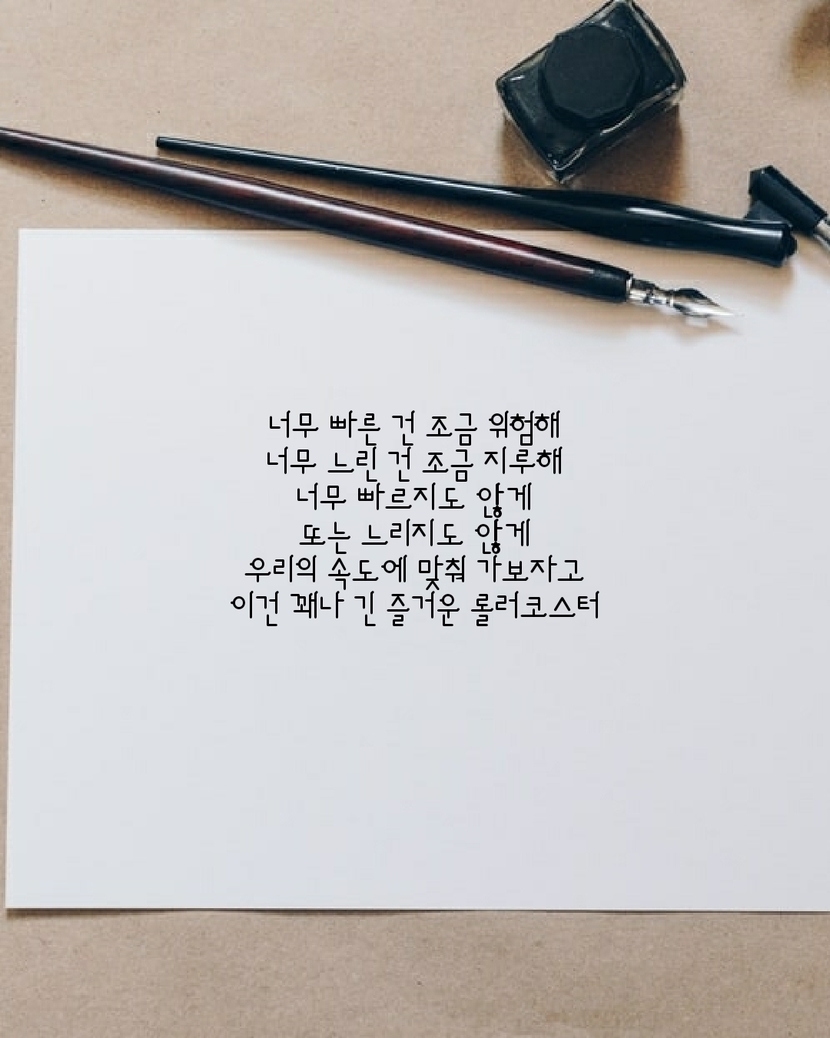 너무 빠른 건 조금 위험해
너무 느린 건 조금 지루해
너무 빠르지도 않게
또는 느리지도 않게
우리의 속도에 맞춰 가보자고
이건 꽤나 긴 즐거운 롤러코스터